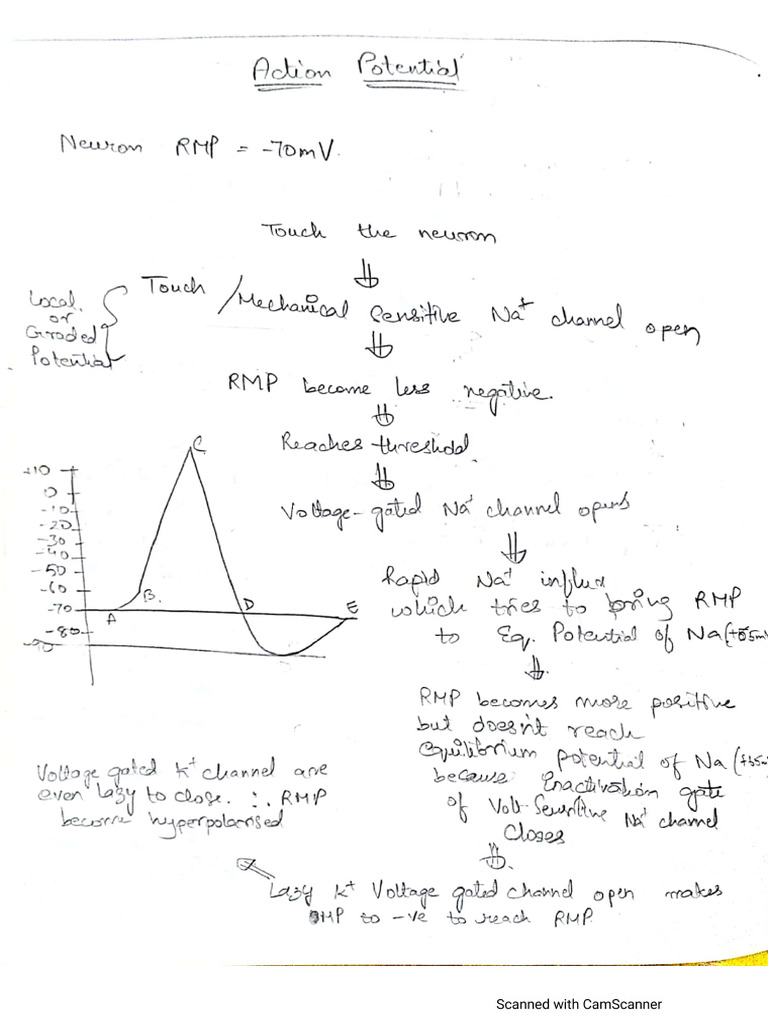 Action Potential
Neuron RMP = -70mV.
Touch the neuron
⇓
Touch /Mechanical Sensitive Na+ channel open
Local.
or
Graded
Potential
⇓
RMP become less negative.
⇓
Reaches threshold
⇓
Voltage-gated Na+ channel opens
⇓
Rapid Na+ influx
which tries to bring RMP
to Eq. Potential of Na (
⇓
RMP becomes more positive
but doesn't reach
equilibrium potential of Na (
because Inactivation gate
of Volt-Sensitive Na+ channel
Closes
⇓
Lazy K+ Voltage gated channel open makes
to -ve to reach RMP.
Voltage gated K+ channel are
even lazy to close. ∴ RMP
become hyperpolarised
+10
0
-10
-20
-30
-40
-50
-60
-70
-80
-90
A
B.
C
D
E
Scanned with CamScanner